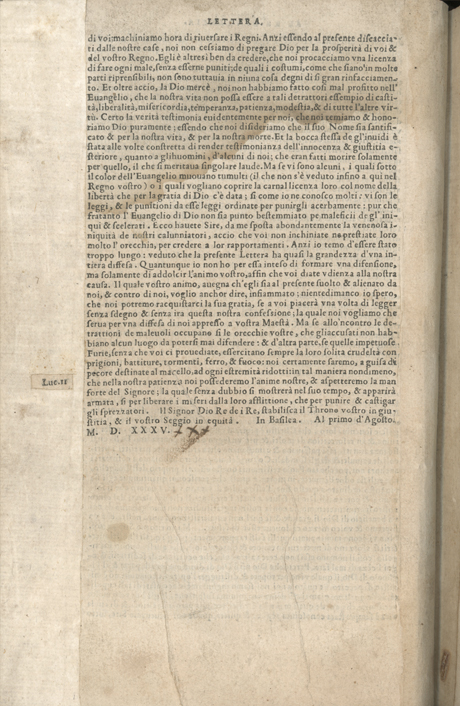 LETTERA.
di voi: machiniamo hora di riuersare i Regni. Anzi essendo al presente discaccia-
ti dalle nostre case, noi non cessiamo di pregare Dio per la prosperità di voi &
del vostro Regno. Egli è altresi ben da credere, che noi procacciamo vna licenza
di fare ogni male, senza esserne puniti: de quali i costumi, come che siano in molte
parti riprensibili, non sono tuttauia in niuna cosa degni di sì gran rinfacciamen-
to. Et oltre accio, la Dio mercè, noi non habbiamo fatto così mal profitto nell'
Euangelio, che la nostra vita non possa essere a tali detrattori essempio di casti-
tà, liberalità, misericordia, temperanza, patienza, modestia, & di tutte l'altre vir-
tù. Certo la verità testimonia euidentemente per noi, che noi temiamo & hono-
riamo Dio puramente: essendo che noi disideriamo che il suo Nome sia santifi-
cato & per la nostra vita, & per la nostra morte. Et la bocca stessa de gl'inuidi è
stata alle volte constretta di render testimonianza dell'innocenza & giustitia e-
steriore, quanto a gli huomini, d'alcuni di noi: che eran fatti morire solamente
per quello, il che si meritaua singolare laude. Ma se vi sono alcuni, i quali sotto
il color dell'Euangelio muouano tumulti (il che non s'è veduto infino a qui nel
Regno vostro) o i quali vogliano coprire la carnal licenza loro col nome della
libertà che per la gratia di Dio c'è data; si come io ne conosco molti: vi son le
leggi, & le punitioni da esse leggi ordinate per punirgli acerbamente: pur che
fratanto l'Euangelio di Dio non sia punto bestemmiato pe maleficii de gl'ini-
qui & scelerati. Ecco hauete Sire, da me sposta abondantemente la venenosa i-
niquità de nostri calunniatori, accio che voi non inchiniate ne prestiate loro
molto l'orecchia, per credere a lor rapportamenti. Anzi io temo d'essere stato
troppo lungo: veduto che la presente Lettera ha quasi la grandezza d'vna in-
tiera diffesa. Quantunque io non ho per essa inteso di formare vna difensione,
ma solamente di addolcir l'animo vostro, affin che voi diate vdienza alla nostra
causa. Il quale vostro animo, auegna ch'egli sia al presente suolto & alienato da
noi, & contro di noi, voglio anchor dire, infiammato; nientedimanco io spero,
che noi potremo racquistarci la sua gratia, se a voi piacerà vna volta di legger
senza sdegno & senza ira questa nostra confessione; la quale noi vogliamo che
serua per vna diffesa di noi appresso a vostra Maestà. Ma se allo'ncontro le de-
trattioni de maleuoli occupano si le orecchie vostre, che gli accusati non hab-
biano alcun luogo da potersi mai difendere: & d'altra parte, se quelle impetuose
Furie, senza che voi ci prouediate, essercitano sempre la loro solita crudeltà con
prigioni, battiture, tormenti, ferro, & fuoco: noi certamente saremo, a guisa di
pecore destinate al macello, ad ogni estremità ridotti: in tal maniera nondimeno,
che nella nostra patienza noi possederemo l'anime nostre, & aspetteremo la man
Luc. 21
forte del Signore; la quale senza dubbio si mostrerà nel suo tempo, & apparirà
armata, si per liberare i miseri dalla loro afflittione, che per punire & castigar
gli sprezzatori. Il Signor Dio Re de i Re, stabilisca il Throno vostro in giu-
stitia, & il vostro Seggio in equità. In Basilea. Al primo d'Agosto.
M. D. XXXV.